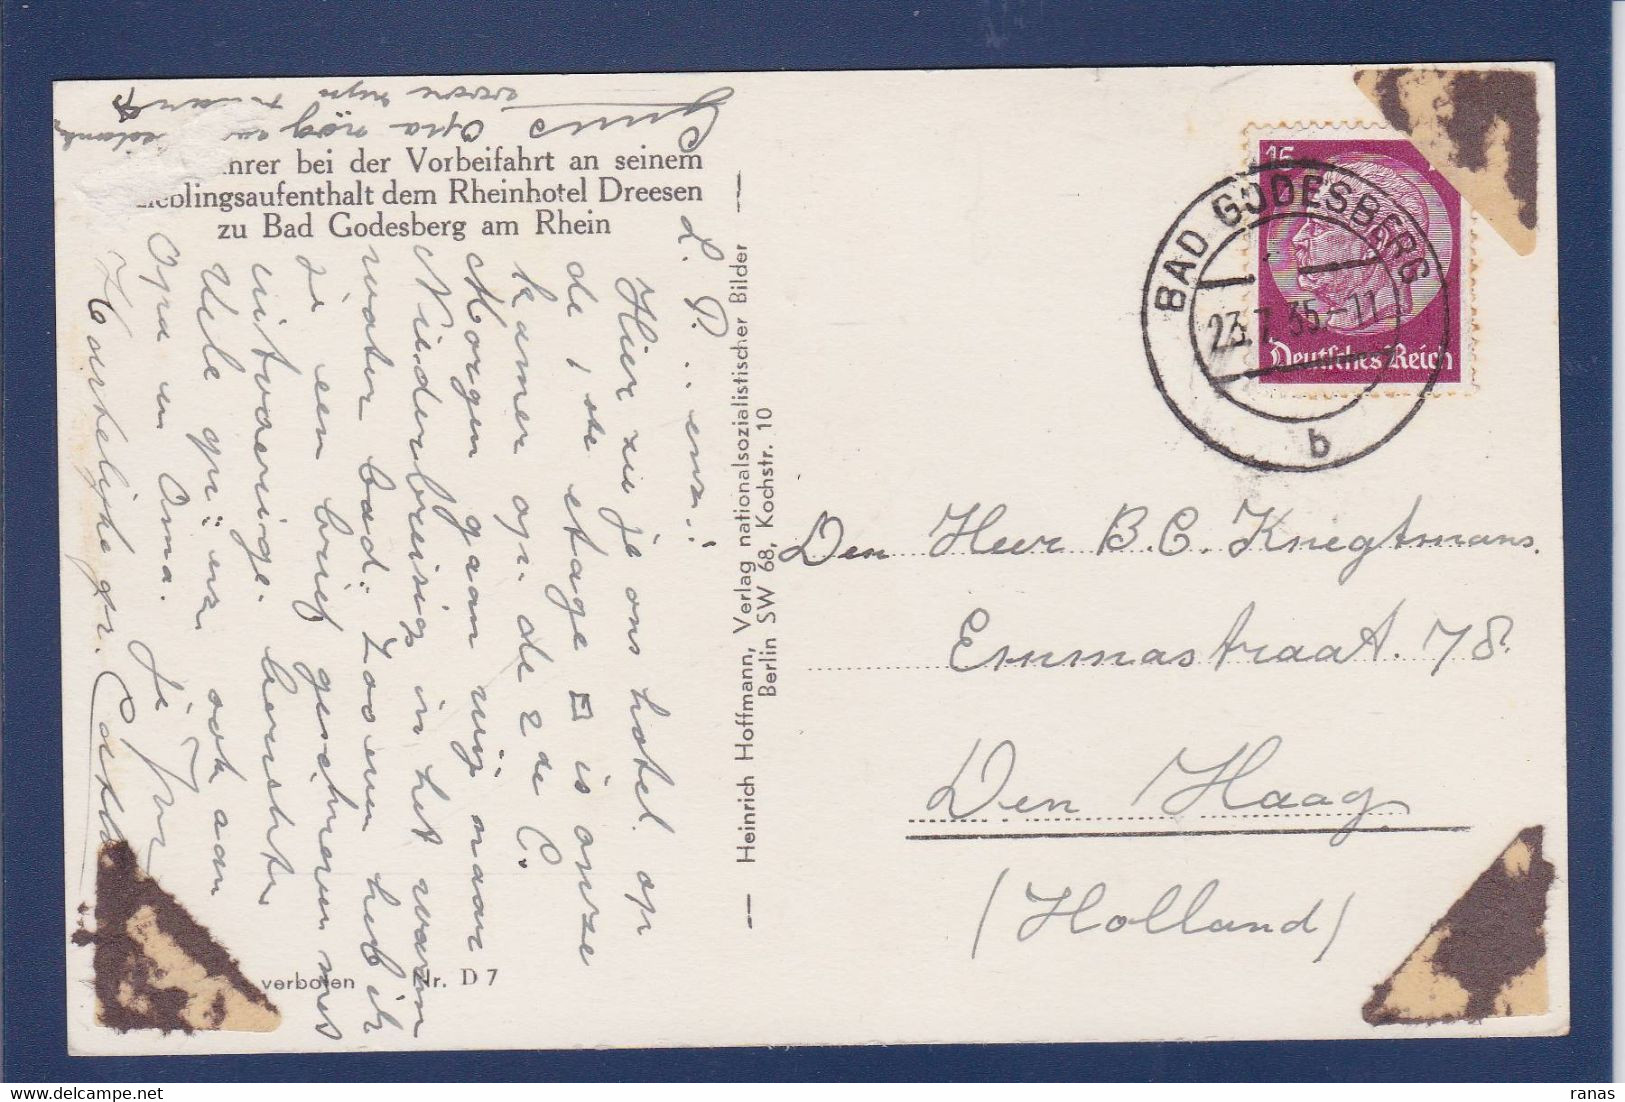 hrer bei der Vorbeifahrt an seinem
Lieblingsaufenthalt dem Rheinhotel Dreesen
zu Bad Godesberg am Rhein
L. P. . . enz.:
Hier zie je ons hotel. op
de 1ste etage is onze
kamer op. de 2de C.
Morgen gaan wij naar
Niederbreisig in het warm
water bad: Zooeven heb ik
je een brief geschreven met
uitvoerige berichten
Vele gr: enz ook aan
Opa en Oma. je
Hartelijke gr.
Guus Opa nog wel
— Heinrich Hoffmann, Verlag nationalsozialistischer Bilder —
Berlin SW 68, Kochstr. 10
verboten Nr. D 7
15
Deutsches Reich
BAD GODESBERG
23.7.35.-11
b
Den Heer B.C. Kniegtmans.
Emmastraat. 78.
Den Haag.
(Holland)
ranas